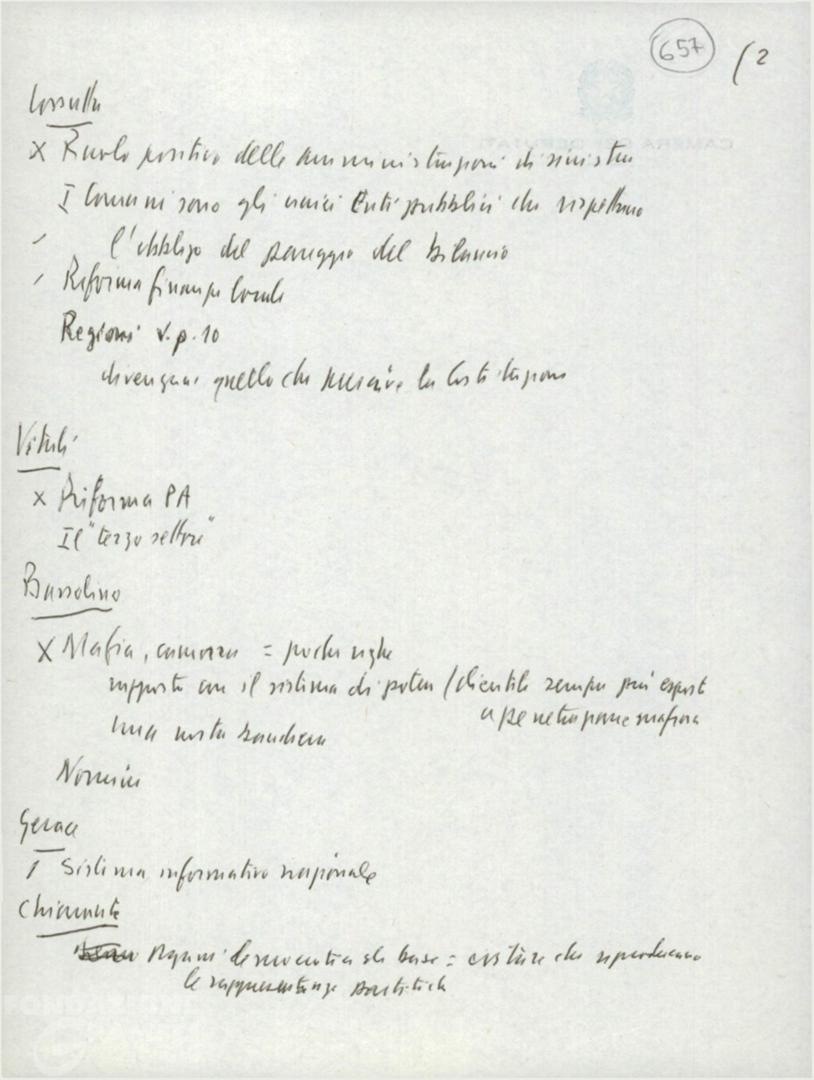 657
(2
Cossutta
X Ruolo positivo delle amministrazioni di sinistra
I Comuni sono gli unici Enti pubblici che rispettano
l'obbligo del pareggio del bilancio
Riforma finanza locale
Regioni v. p. 10
divengano quello che prescrive la Costituzione
Vitali
X Riforma PA
Il "terzo settore"
Bassolino
X Mafia, camorra = poche righe
rapporto con il sistema di potere / clientele sempre più esposte
a penetrazione mafiosa
Una nostra bandiera
Nomine
Gerace
Sistema informativo nazionale
Chiarante
Organi democratici di base = evitare che riproducano
le rappresentanze partitiche
CAMERA DEI DEPUTATI
FONDAZIONE